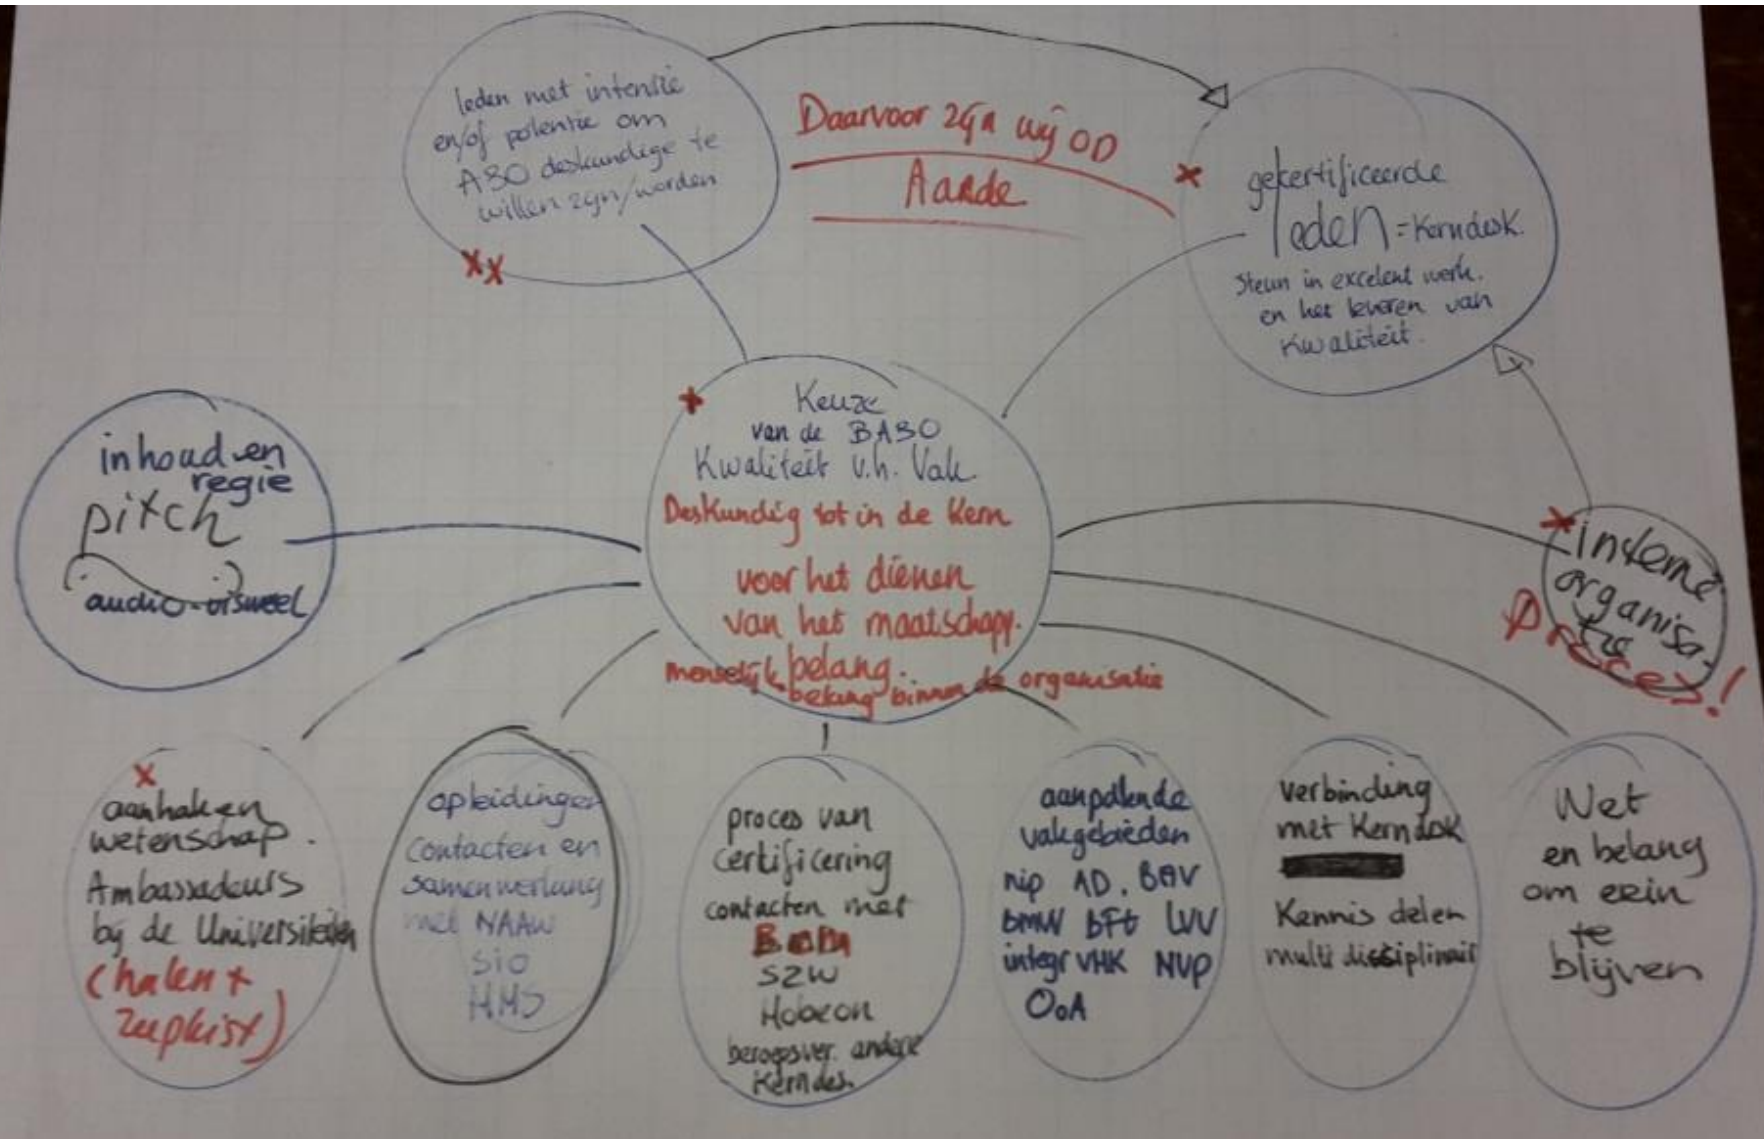 leden met intensie
en/of potentie om
ABO deskundige te
willen zijn/worden
xx
Daarvoor zijn wij op
Aarde
x
gekertificeerde
leden = Kerndesk.
Steun in excelent werk.
en het leveren van
Kwaliteit.
x
Keuze
van de BABO
Kwaliteit v.h. Vak.
Deskundig tot in de Kern
voor het dienen
van het maatschapp.
belang.
menselijk
belang binnen de organisatie
inhoud en
regie
pitch
audio-visueel
x
interne
organisa-
tie
Proces!
x
aanhaken
wetenschap.
Ambassadeurs
bij de Universiteiten
(halen +
Zeepkist)
opleidingen
contacten en
samenwerking
met NAAW
SIO
HMS
proces van
certificering
contacten met
SZW
Hobeon
beroepsver. andere
Kerndes.
aanpallende
vakgebieden
nip AD. BAV
bmw bft LVV
integr VHK NVP
OoA
verbinding
met Kerndesk
Kennis delen
multi dissiplinair
Wet
en belang
om erin
te
blijven